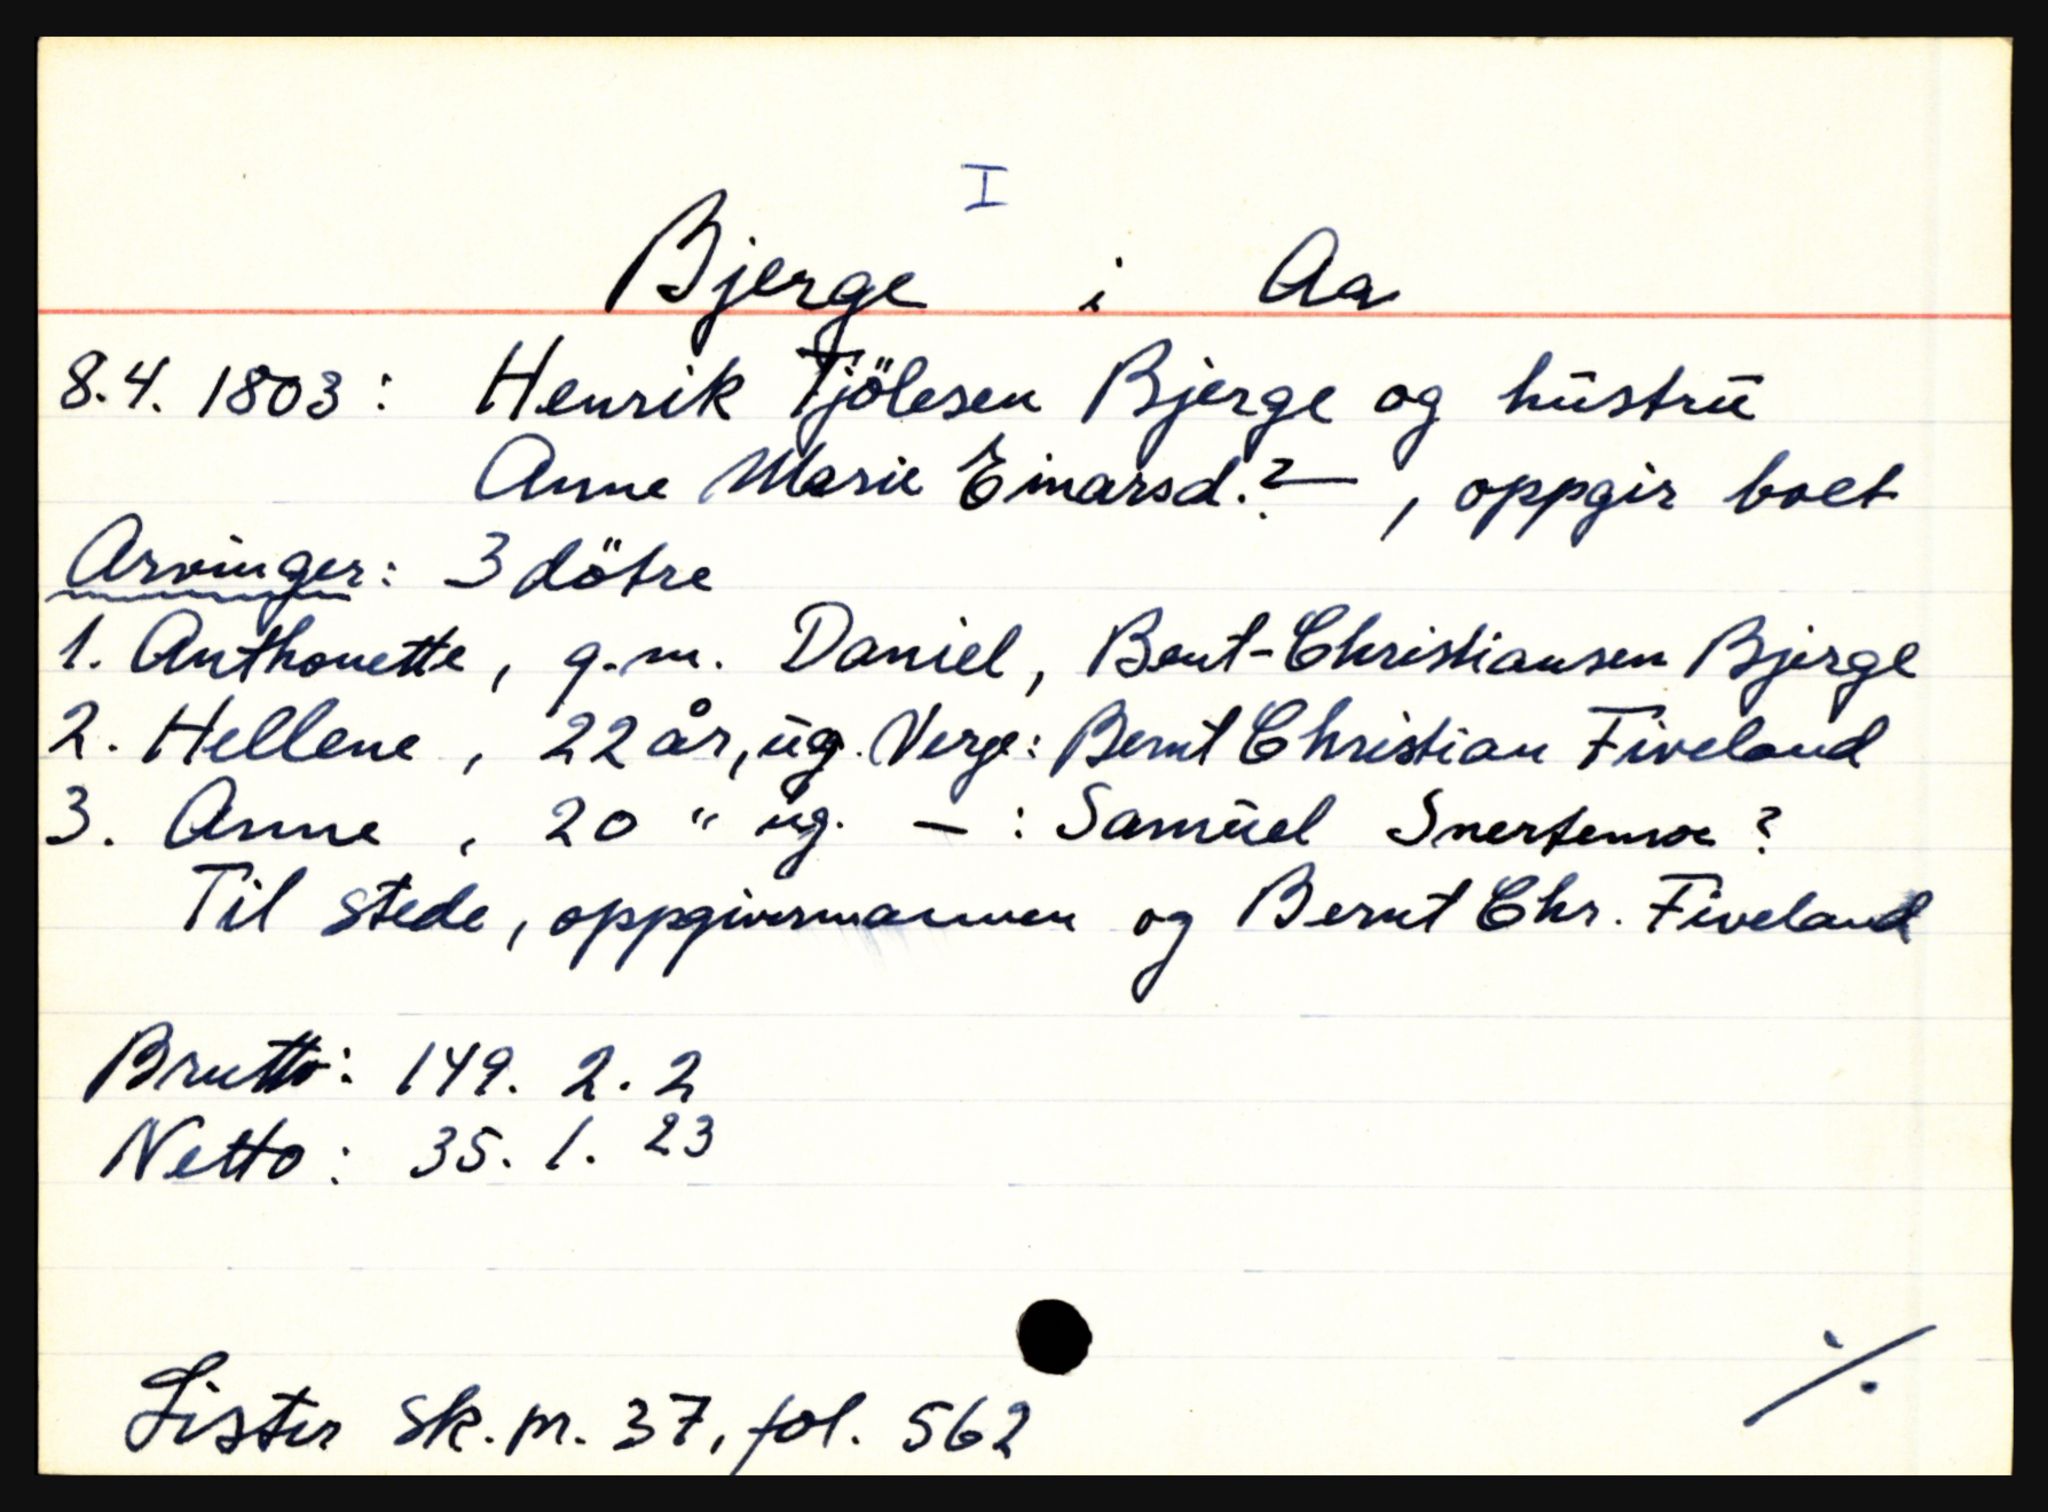 I
Bjerge i Aa
8.4. 1803: Henrik Tjölesen Bjerge og hūstrū
Anne Marie Einarsd.? —, oppgir boet
Arvinger: 3 dötre
1. Anthonette, g.m. Daniel, Bent-Christiansen Bjerge
2. Hellene, 22 år, ūg. Verge: Bernt Christian Fiveland
3. Anne, 20 " ūg. — : Samūel Snertemoe?
Til stede, oppgivermannen og Bernt Chr. Fiveland
Brutto: 149. 2. 2
Netto: 35. 1. 23
Lister sk. pr. 37, fol. 562